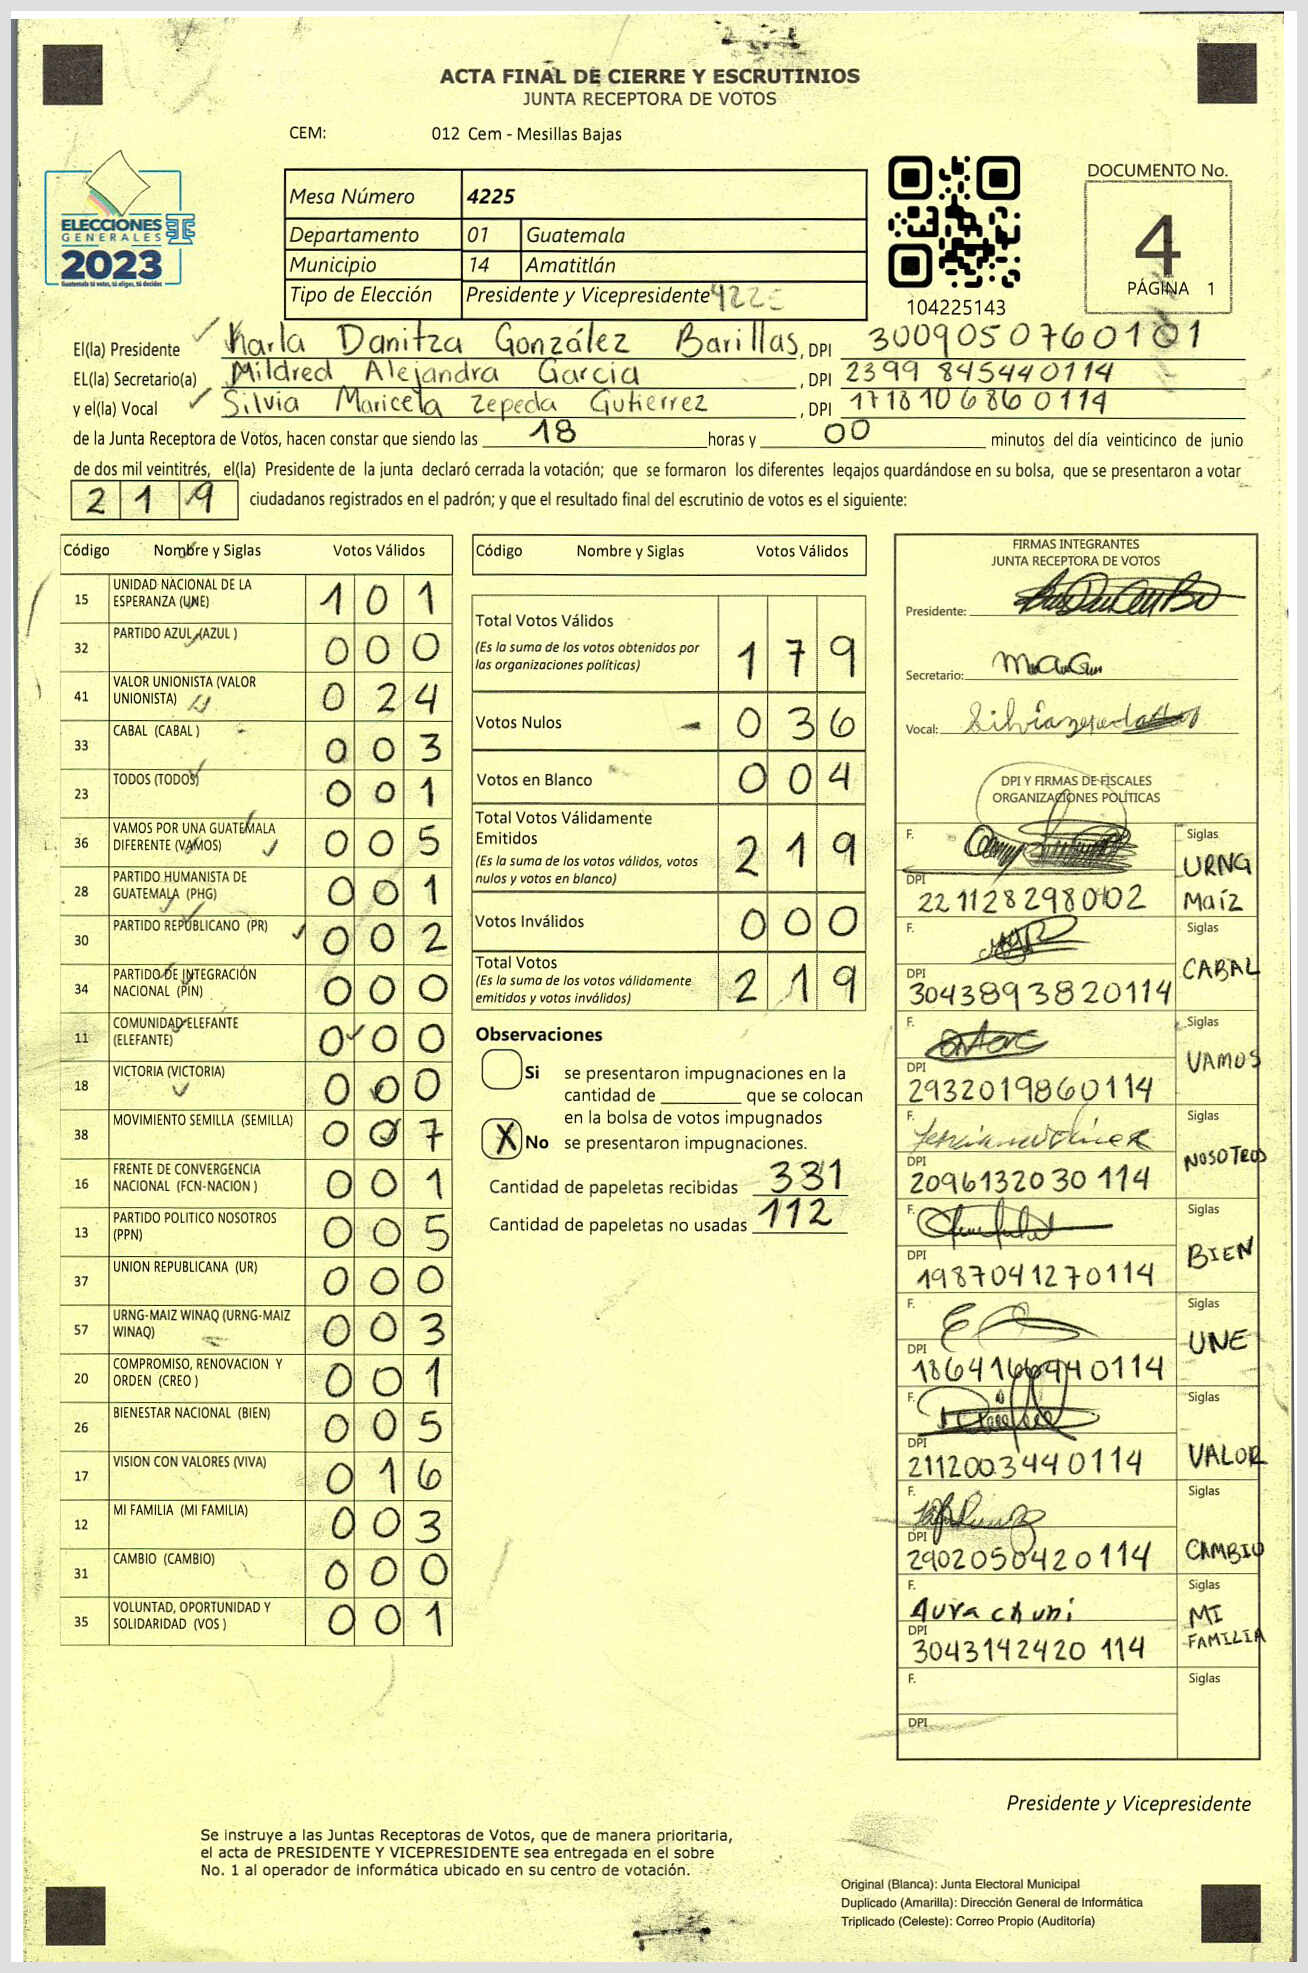 ACTA FINAL DE CIERRE Y ESCRUTINIOS
JUNTA RECEPTORA DE VOTOS
CEM: 012 Cem - Mesillas Bajas
ELECCIONES
GENERALES
2023
Guatemala tú votas, tú eliges, tú decides
Mesa Número 4225
Departamento 01 Guatemala
Municipio 14 Amatitlán
Tipo de Elección Presidente y Vicepresidente
104225143
DOCUMENTO No.
4
PÁGINA 1
El(la) Presidente Karla Danitza González Barillas, DPI 3009050760101
EL(la) Secretario(a) Mildred Alejandra Garcia, DPI 2399 845440114
y el(la) Vocal Silvia Maricela Zepeda Gutierrez, DPI 1718106860114
de la Junta Receptora de Votos, hacen constar que siendo las 18 horas y 00 minutos del día veinticinco de junio
de dos mil veintitrés, el(la) Presidente de la junta declaró cerrada la votación; que se formaron los diferentes legajos quardándose en su bolsa, que se presentaron a votar
219 ciudadanos registrados en el padrón; y que el resultado final del escrutinio de votos es el siguiente:
Código Nombre y Siglas Votos Válidos
15 UNIDAD NACIONAL DE LA ESPERANZA (UNE) 101
32 PARTIDO AZUL (AZUL ) 000
41 VALOR UNIONISTA (VALOR UNIONISTA) 024
33 CABAL (CABAL ) 003
23 TODOS (TODOS) 001
36 VAMOS POR UNA GUATEMALA DIFERENTE (VAMOS) 005
28 PARTIDO HUMANISTA DE GUATEMALA (PHG) 001
30 PARTIDO REPUBLICANO (PR) 002
34 PARTIDO DE INTEGRACIÓN NACIONAL (PIN) 000
11 COMUNIDAD ELEFANTE (ELEFANTE) 000
18 VICTORIA (VICTORIA) 000
38 MOVIMIENTO SEMILLA (SEMILLA) 007
16 FRENTE DE CONVERGENCIA NACIONAL (FCN-NACION ) 001
13 PARTIDO POLITICO NOSOTROS (PPN) 005
37 UNION REPUBLICANA (UR) 000
57 URNG-MAIZ WINAQ (URNG-MAIZ WINAQ) 003
20 COMPROMISO, RENOVACION Y ORDEN (CREO ) 001
26 BIENESTAR NACIONAL (BIEN) 005
17 VISION CON VALORES (VIVA) 016
12 MI FAMILIA (MI FAMILIA) 003
31 CAMBIO (CAMBIO) 000
35 VOLUNTAD, OPORTUNIDAD Y SOLIDARIDAD (VOS ) 001
Código Nombre y Siglas Votos Válidos
Total Votos Válidos 179
(Es la suma de los votos obtenidos por
las organizaciones políticas)
Votos Nulos 036
Votos en Blanco 004
Total Votos Válidamente Emitidos 219
(Es la suma de los votos válidos, votos
nulos y votos en blanco)
Votos Inválidos 000
Total Votos 219
(Es la suma de los votos válidamente
emitidos y votos inválidos)
Observaciones
Si se presentaron impugnaciones en la
cantidad de ________ que se colocan
en la bolsa de votos impugnados
X No se presentaron impugnaciones.
Cantidad de papeletas recibidas 331
Cantidad de papeletas no usadas 112
FIRMAS INTEGRANTES
JUNTA RECEPTORA DE VOTOS
Presidente:
Secretario:
Vocal:
DPI Y FIRMAS DE FISCALES
ORGANIZACIONES POLÍTICAS
F. Siglas URNG Maíz
DPI 2211282980102
F. Siglas CABAL
DPI 3043893820114
F. Siglas VAMOS
DPI 2932019860114
F. Siglas NOSOTROS
DPI 2096132030 114
F. Siglas BIEN
DPI 1987041270114
F. Siglas UNE
DPI
F. Siglas VALOR
DPI 2112003440114
F. Siglas CAMBIO
DPI 2902050420114
F. Aura chuni Siglas MI FAMILIA
DPI 3043142420 114
F. Siglas
DPI
Presidente y Vicepresidente
Se instruye a las Juntas Receptoras de Votos, que de manera prioritaria,
el acta de PRESIDENTE Y VICEPRESIDENTE sea entregada en el sobre
No. 1 al operador de informática ubicado en su centro de votación.
Original (Blanca): Junta Electoral Municipal
Duplicado (Amarilla): Dirección General de Informática
Triplicado (Celeste): Correo Propio (Auditoría)